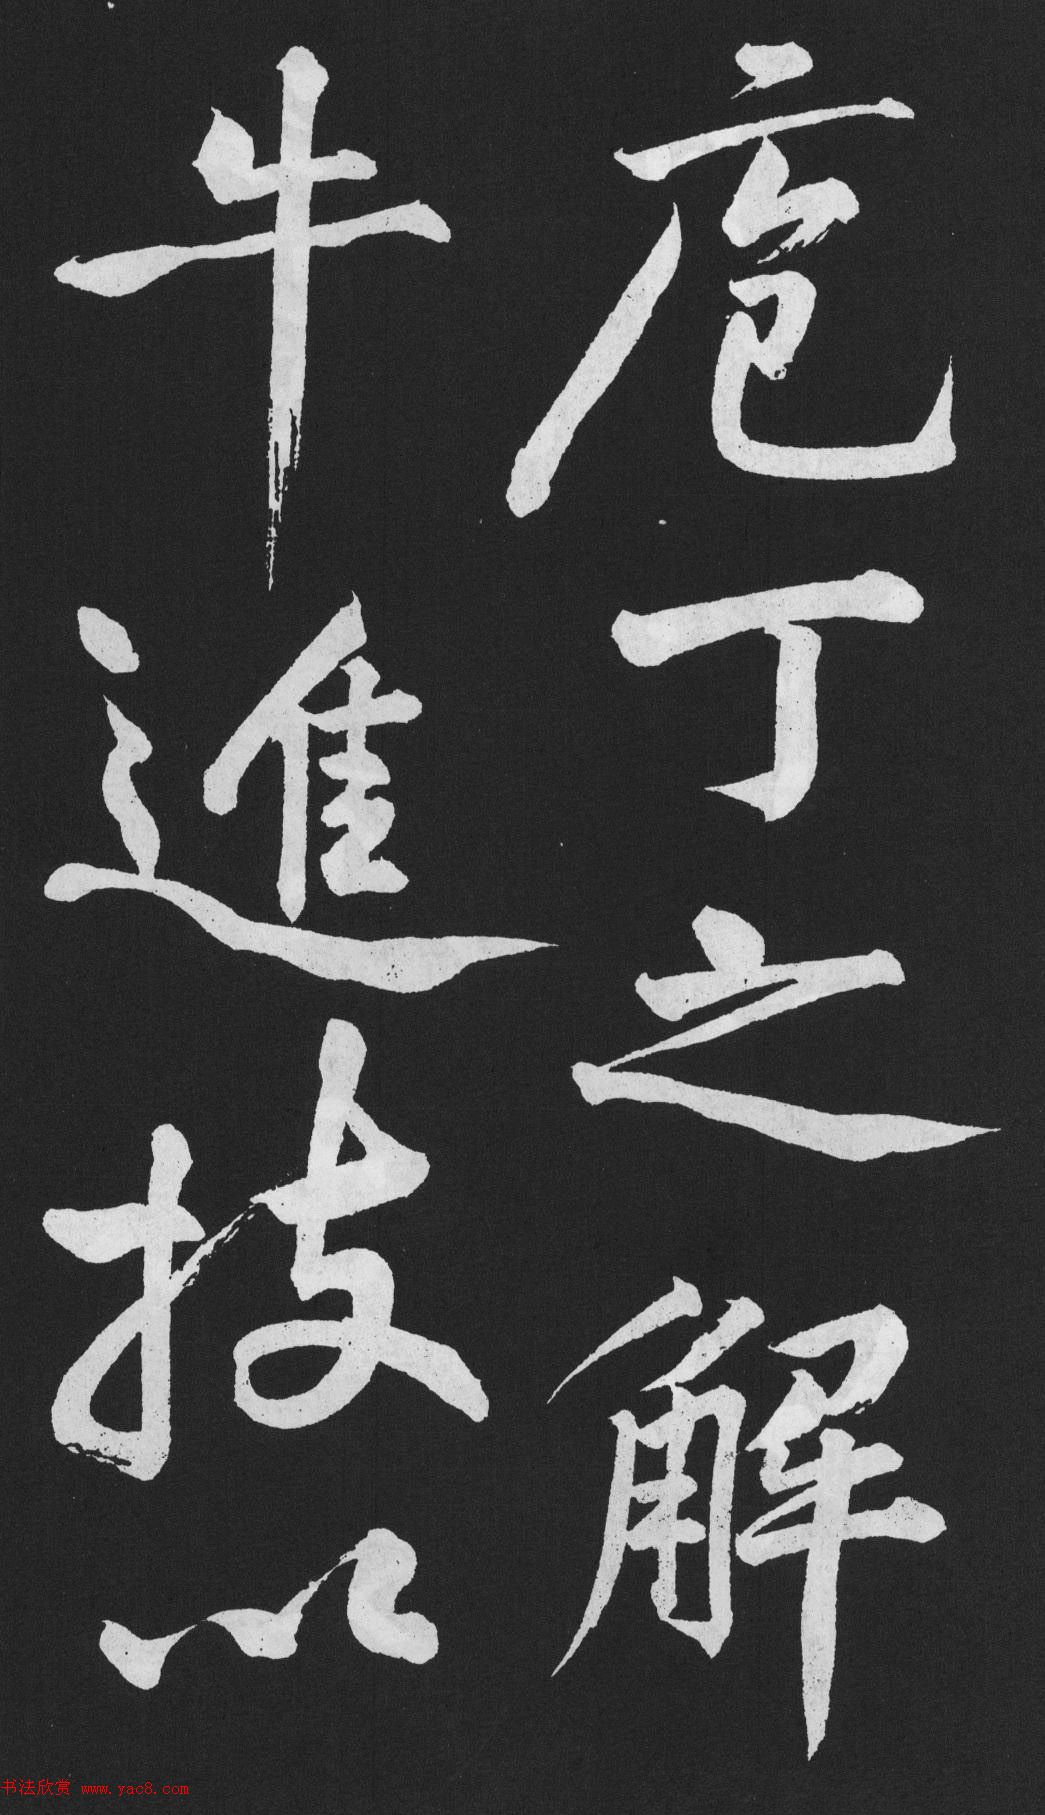 庖丁之解
牛進技以
书法欣赏 www.yac8.com